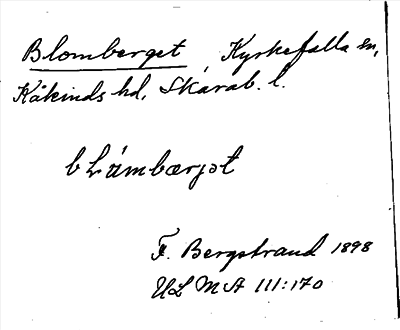 Blomberget, Kyrkefalla sn,
Kåkinds hd, Skarab. l.
bLɷ̀mbærjət
F. Bergstrand 1898
ULMA 111:170